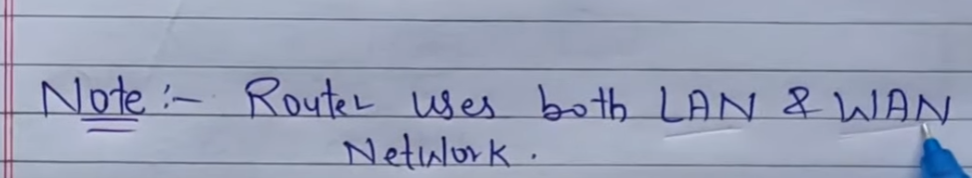 Note :- Router uses both LAN & WAN
Network.